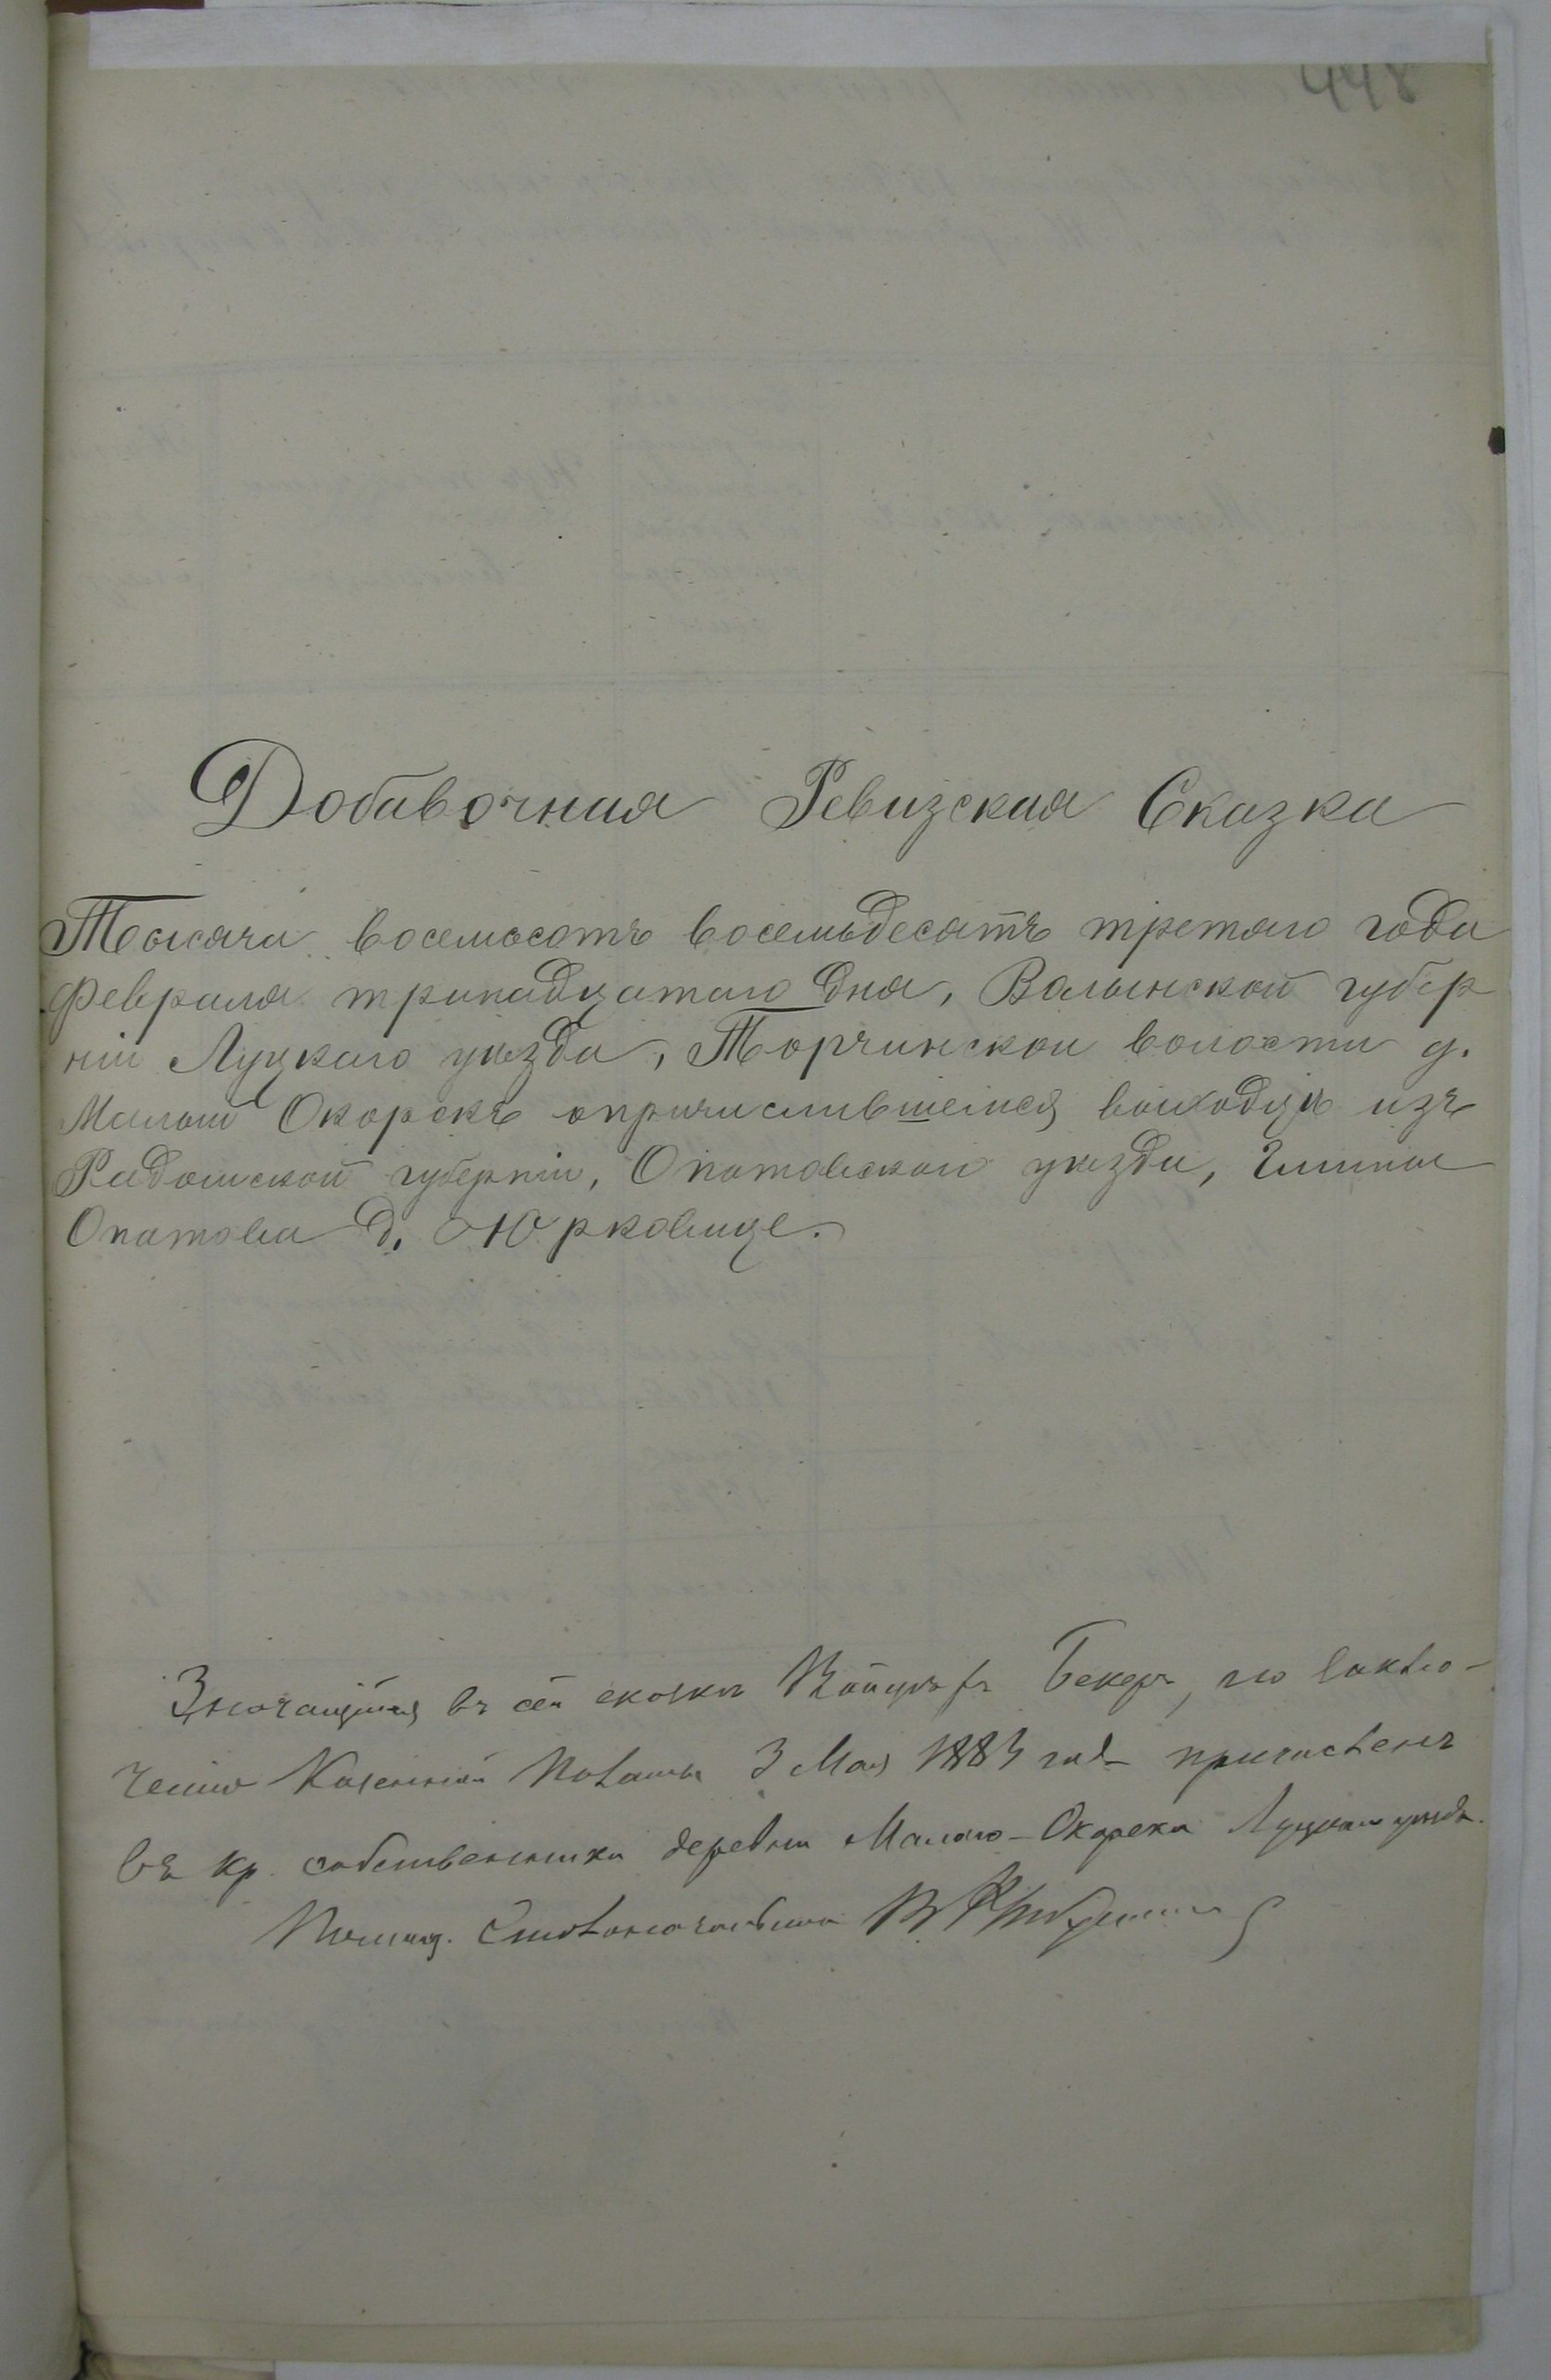 448
Добавочная Ревизская Сказка
Тысяча восемьсотъ восемьдесятъ третяго года
февраля тринадцатаго дня, Волынской губер
нiи Луцкаго уѣзда, Торчинской волости д.
Малый Окорскъ опричислившемся выходцѣ изъ
Радомской губернiи, Опатовскаго уѣзда, Гмины
Опатова д. Юрковице.
Значащiйся въ сей сказкѣ Бекеръ, по заклю-
ченiю Казенной Палаты 3 Мая 1883 года причисленъ
въ кр. собственники деревни Малаго-Окорска Луцкаго уѣзда.
Столоначальника